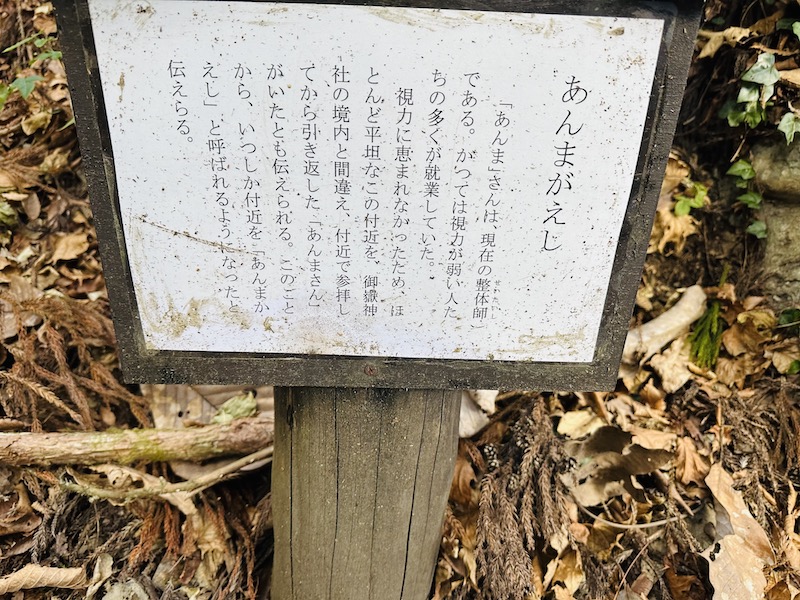 あんまがえし
「あんま」さんは、現在の整体師
せいたいし
である。かつては視力が弱い人た
ちの多くが就業していた。
視力に恵まれなかったため、ほ
とんど平坦なこの付近を、御嶽神
社の境内と間違え、付近で参拝し
てから引き返した「あんまさん」
がいたとも伝えられる。このこと
から、いつしか付近を「あんまが
えし」と呼ばれるようになったと
伝えらる。